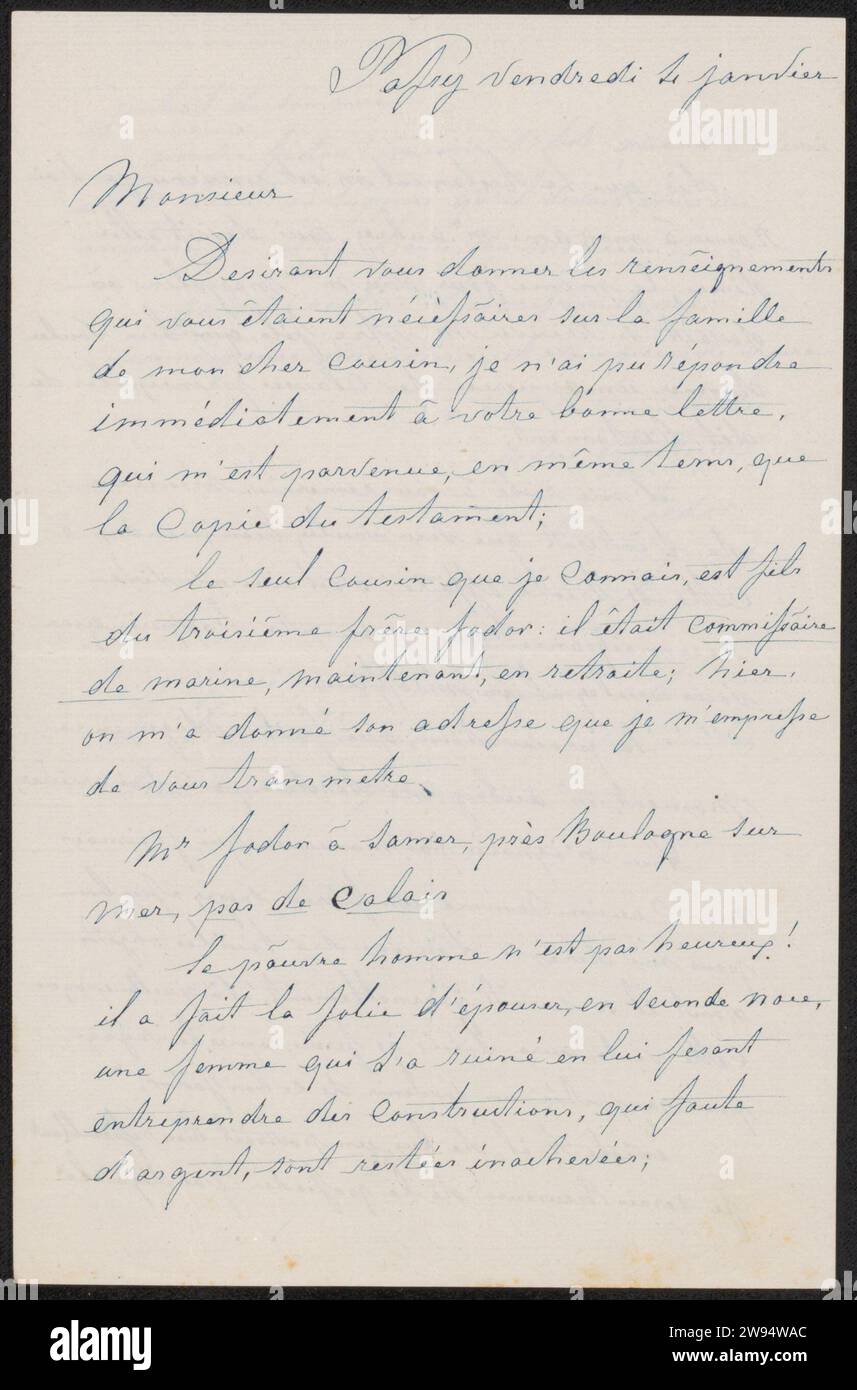 Passy vendredi 4 janvier
Monsieur
Desirant vous donner les renseignements
qui vous êtaient nécéssaires sur la famille
de mon cher cousin, je n'ai pu répondre
immédiatement à votre bonne lettre,
qui m'est parvenue, en même tems, que
la Copie du testament;
le seul cousin que je connais, est fils
du troisiéme frêre fodor: il êtait commissaire
de marine, maintenant, en retraite; hier,
on m'a donné son adresse que je m'empresse
de vous transmetre.
Mr fodor à Samer, près Boulogne sur
mer, pas de Calais
le pauvre homme n'est pas heureux!
il a fait la folie d'épouser, en seconde noce,
une femme qui l'a ruiné en lui fesant
entreprendre des constructions, qui faute
d'argent, sont restées inachevées;
alamy
alamy
Image ID: 2W94WAC
www.alamy.com